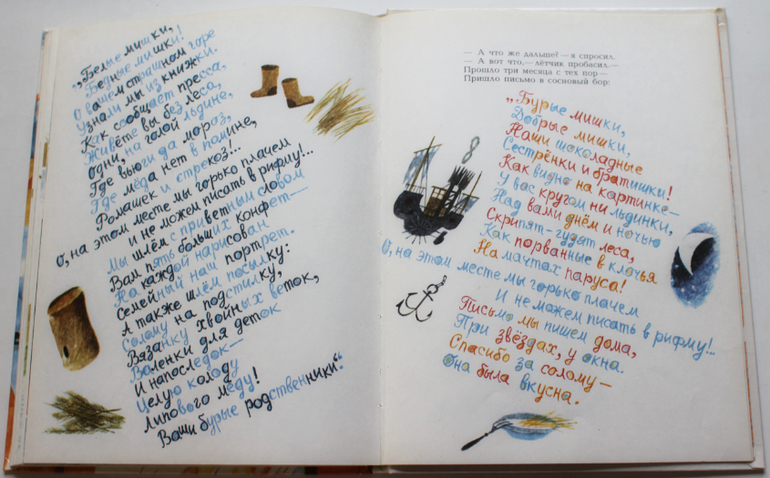 „Белые мишки,
Бедные мишки!
О вашем страшном горе
Узнали мы из книжки.
Как сообщает пресса,
Живёте вы без леса,
Одни, на голой льдине,
Где вьюги да мороз,
Где мёда нет в помине,
Ромашек и стрекоз!..
О, на этом месте мы горько плачем
и не можем писать в рифму!..
Мы шлём с приветным словом
Вам пять больших конфет —
На каждой нарисован
Семейный наш портрет.
А также шлём посылку:
Солому на подстилку,
Вязанку хвойных веток,
Валенки для деток
И напоследок —
Целую колоду
Липового мёду!
Ваши бурые родственники“.
— А что же дальше? — я спросил.
— А вот что, — лётчик пробасил. —
Прошло три месяца с тех пор —
Пришло письмо в сосновый бор:
„Бурые мишки,
Добрые мишки,
Наши шоколадные
Сестрёнки и братишки!
Как видно на картинке —
У вас кругом ни льдинки,
Над вами днём и ночью
Скрипят-гудят леса,
Как порванные в клочья
На мачтах паруса!
О, на этом месте мы горько плачем
И не можем писать в рифму!..
Письмо мы пишем дома,
При звёздах, у окна.
Спасибо за солому —
Она была вкусна.